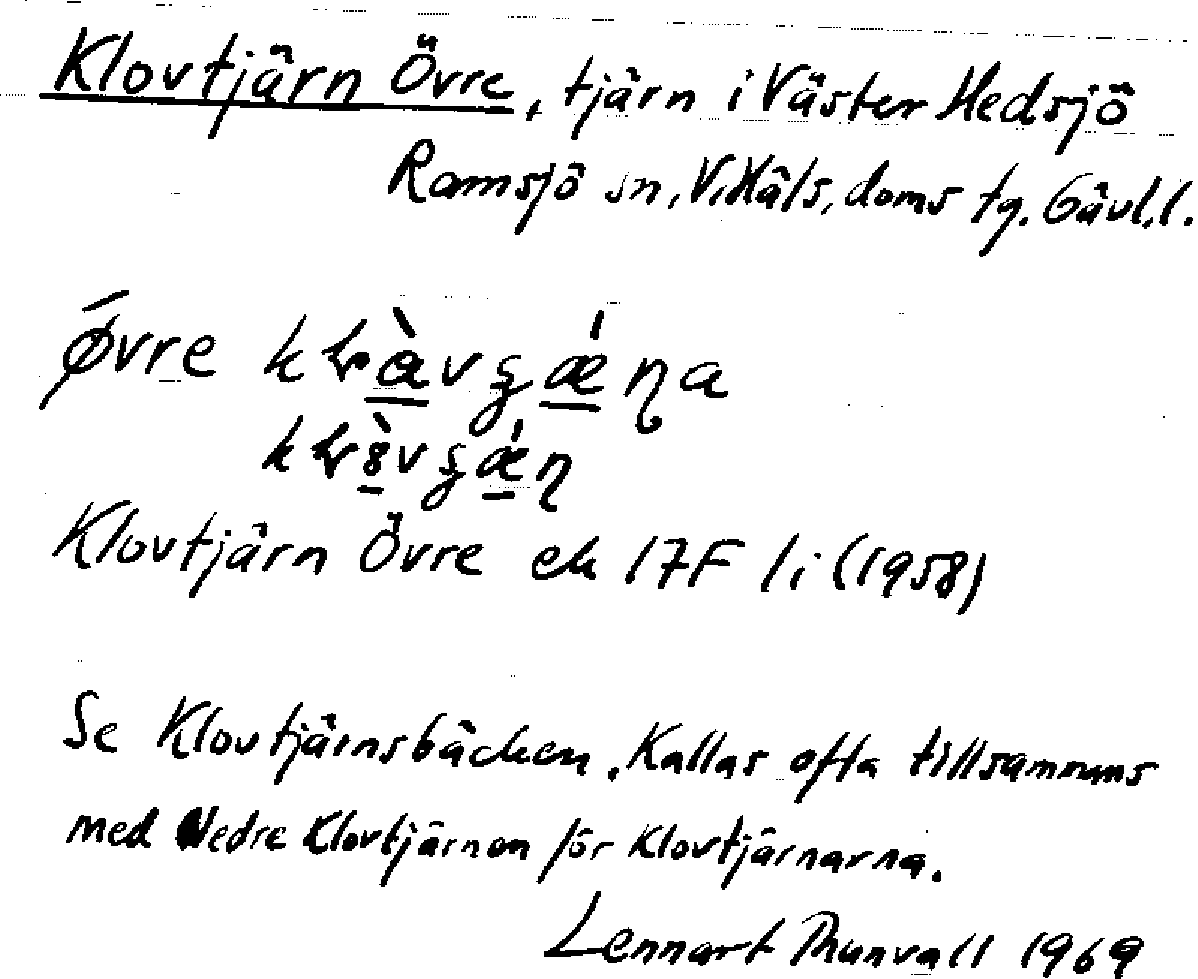 Klovtjärn Övre, tjärn i Väster Hedsjö
Ramsjö sn, V. Häls, doms tg. Gävl.l.
Övre
Klovtjärn Övre ek 17F li (1958)
Se Klovtjärnsbäcken. Kallas ofta tillsammans
med Nedre Klovtjärnen för Klovtjärnarna.
Lennart Thunvall 1969